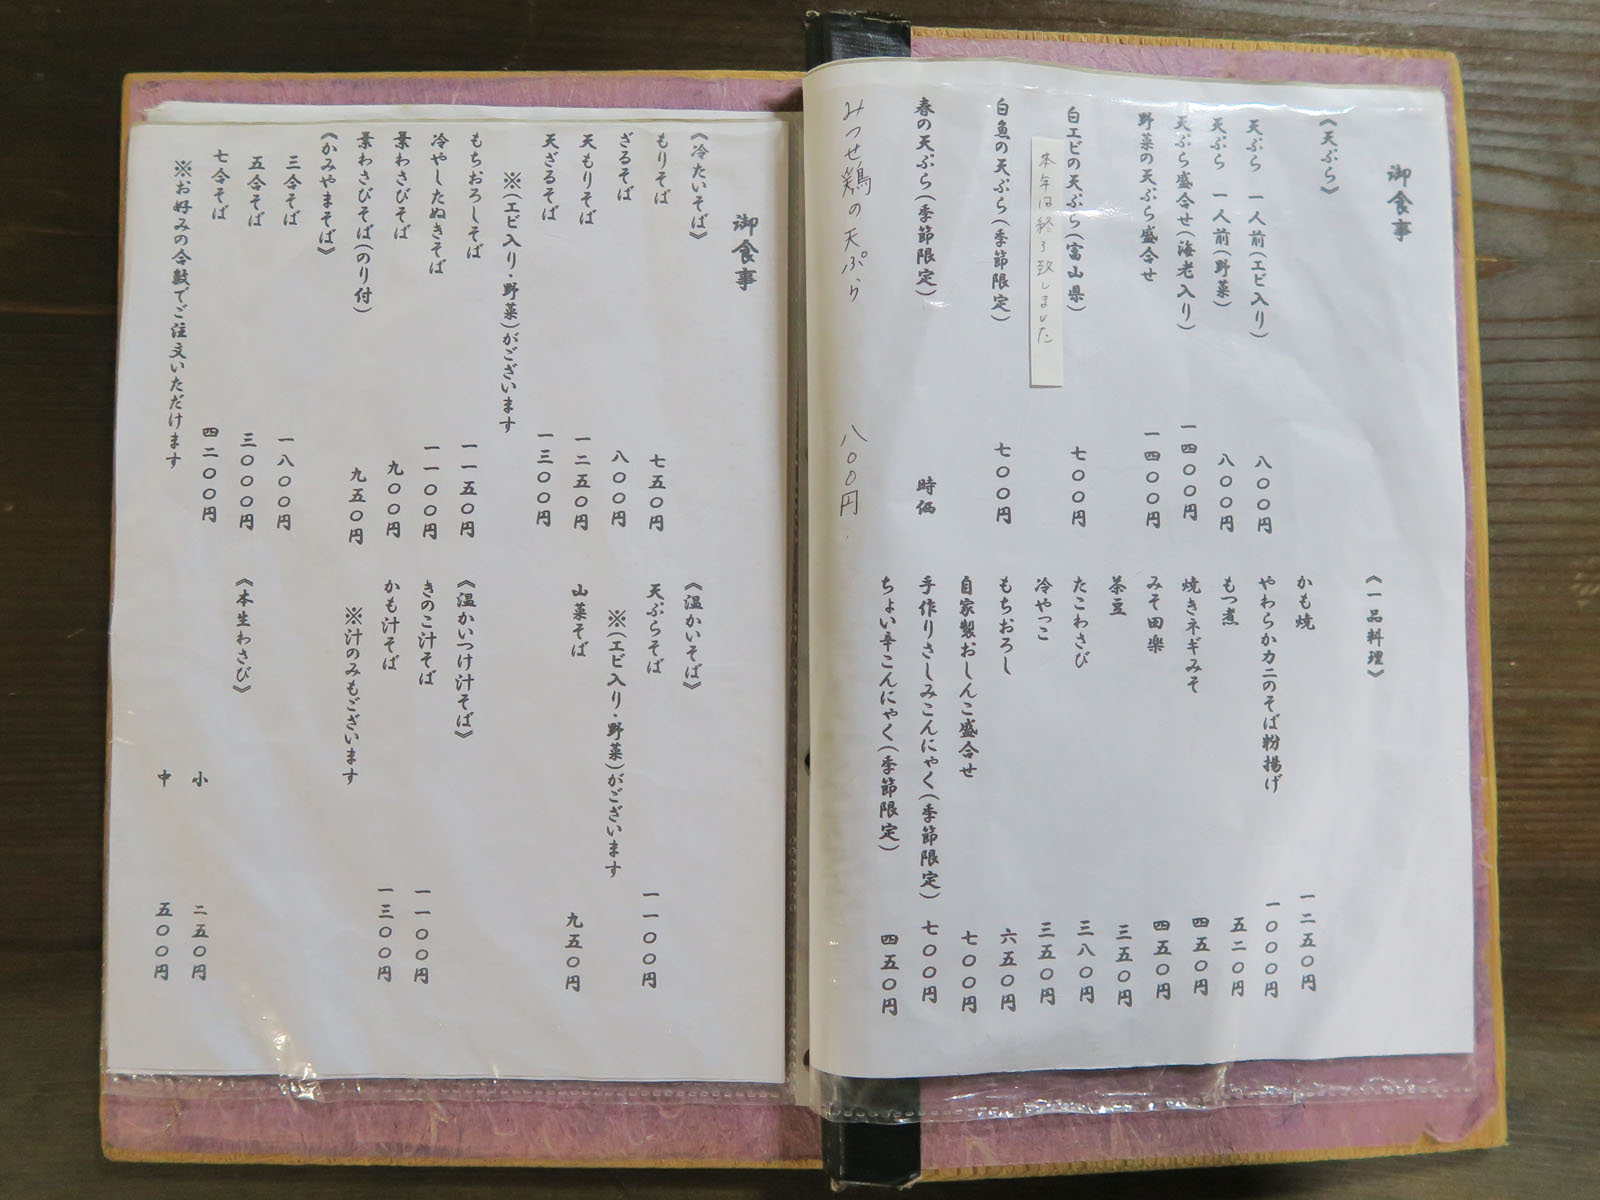 御食事
《天ぷら》
天ぷら 一人前(エビ入り) 八〇〇円
天ぷら 一人前(野菜) 八〇〇円
天ぷら盛合せ(海老入り) 一四〇〇円
野菜の天ぷら盛合せ 一四〇〇円
白エビの天ぷら(富山県) 七〇〇円
本年は終了致しました
白魚の天ぷら(季節限定) 七〇〇円
春の天ぷら(季節限定) 時価
みつせ鶏の天ぷら 八〇〇円
《一品料理》
かも焼 一二五〇円
やわらかカニのそば粉揚げ 一〇〇〇円
もつ煮 五二〇円
焼きネギみそ 四五〇円
みそ田楽 四五〇円
茶豆 三五〇円
たこわさび 三八〇円
冷やっこ 三五〇円
もちおろし 六五〇円
自家製おしんこ盛合せ 七〇〇円
手作りさしみこんにゃく(季節限定) 七〇〇円
ちょい辛こんにゃく(季節限定) 四五〇円
御食事
《冷たいそば》
もりそば 七五〇円
ざるそば 八〇〇円
天もりそば 一二五〇円
天ざるそば 一三〇〇円
※(エビ入り・野菜)がございます
もちおろしそば 一一五〇円
冷やしたぬきそば 一一〇〇円
葉わさびそば 九〇〇円
葉わさびそば(のり付) 九五〇円
《かみやまそば》
三合そば 一八〇〇円
五合そば 三〇〇〇円
七合そば 四二〇〇円
※お好みの合数でご注文いただけます
《温かいそば》
天ぷらそば 一一〇〇円
※(エビ入り・野菜)がございます
山菜そば 九五〇円
《温かいつけ汁そば》
きのこ汁そば 一一〇〇円
かも汁そば 一三〇〇円
※汁のみもございます
《本生わさび》
小 二五〇円
中 五〇〇円